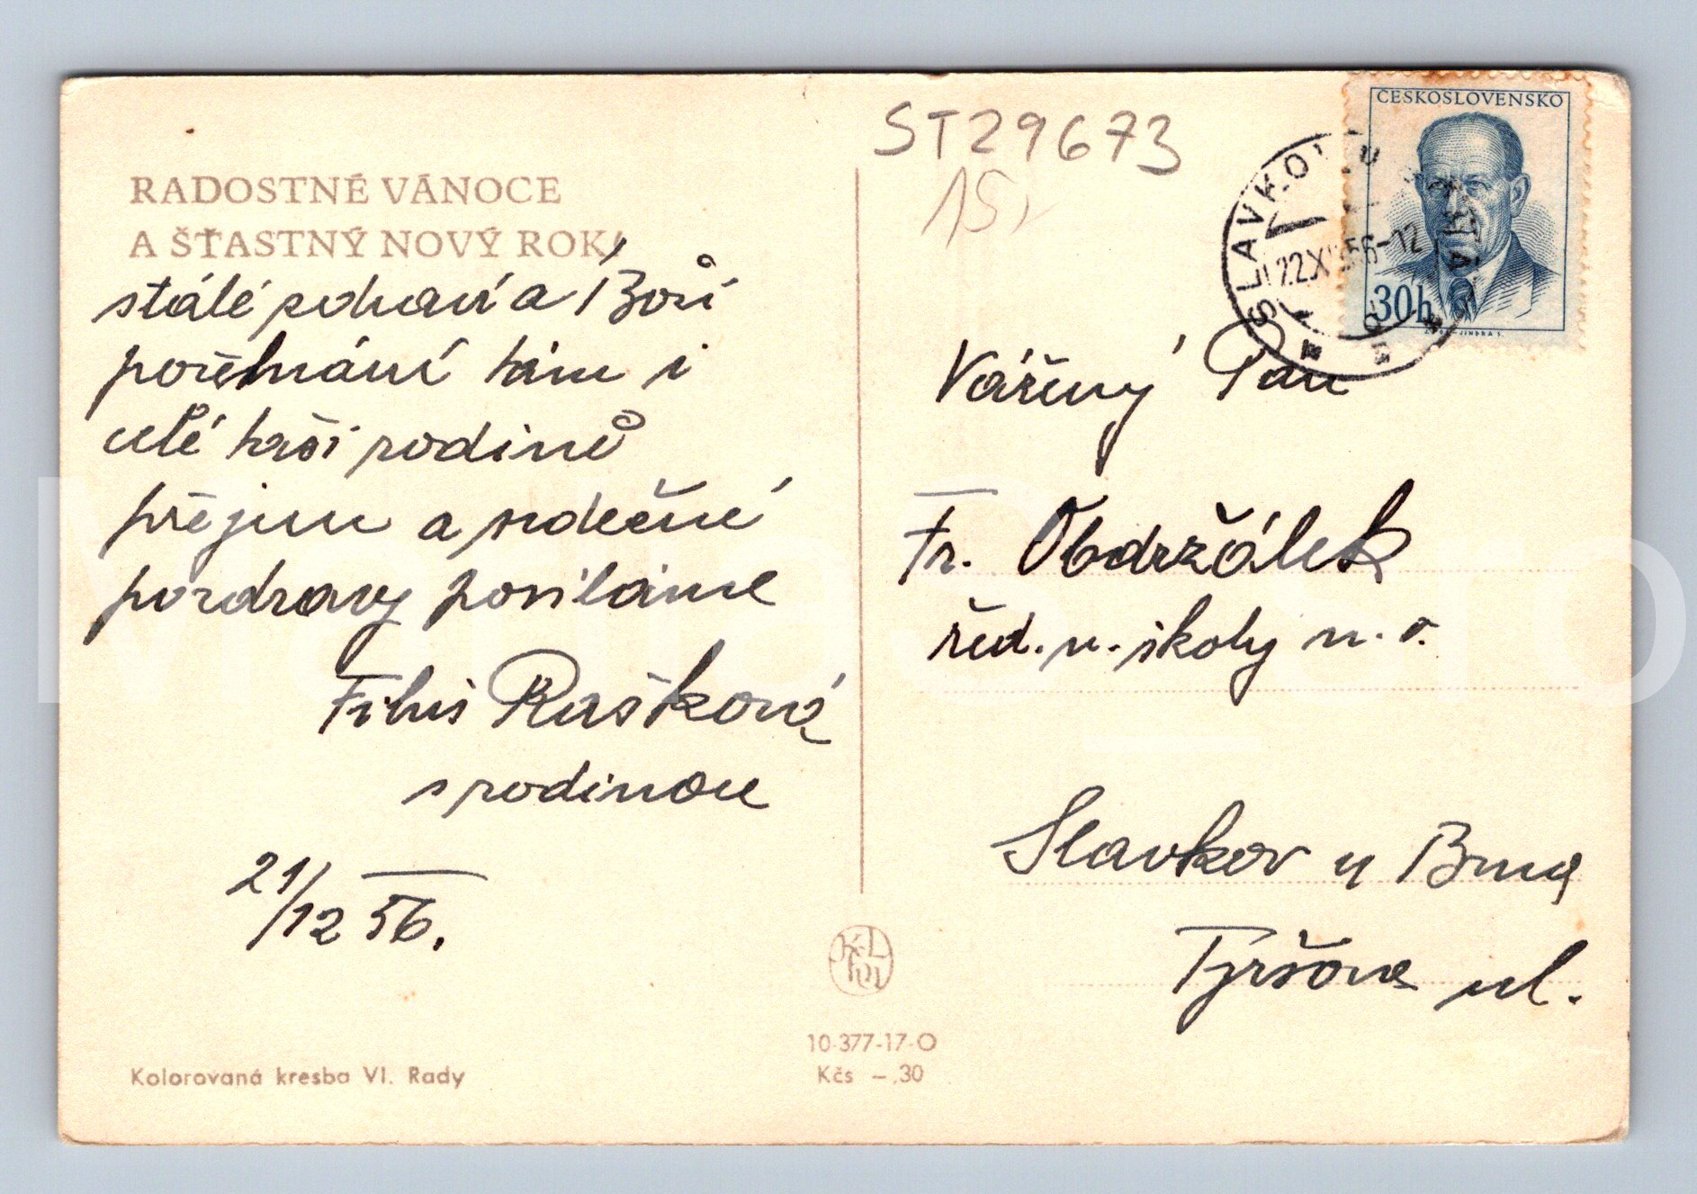 RADOSTNÉ VÁNOCE
A ŠŤASTNÝ NOVÝ ROK,
stálé zdraví a Boží
požehnání Vám i
celé Vaší rodině
přejem a srdečné
pozdravy posíláme
Rašková
s rodinou
21/12 56.
Kolorovaná kresba Vl. Rady
10-377-17-O
Kčs –,30
ST29673
15,
ČESKOSLOVENSKO
30h
SLAVKOV U
22.XII.56-12
Vážený Pan
Fr. Obdržálek
řed. n. školy v. v.
Slavkov u Brna
Tyršova ul.